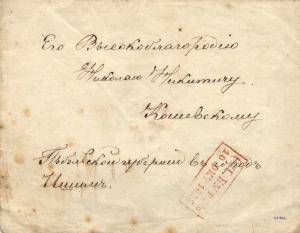 Его Высокоблагородію
Николаю Никитичу
Кошевскому
Тобольской губерніи въ
Ишимъ.